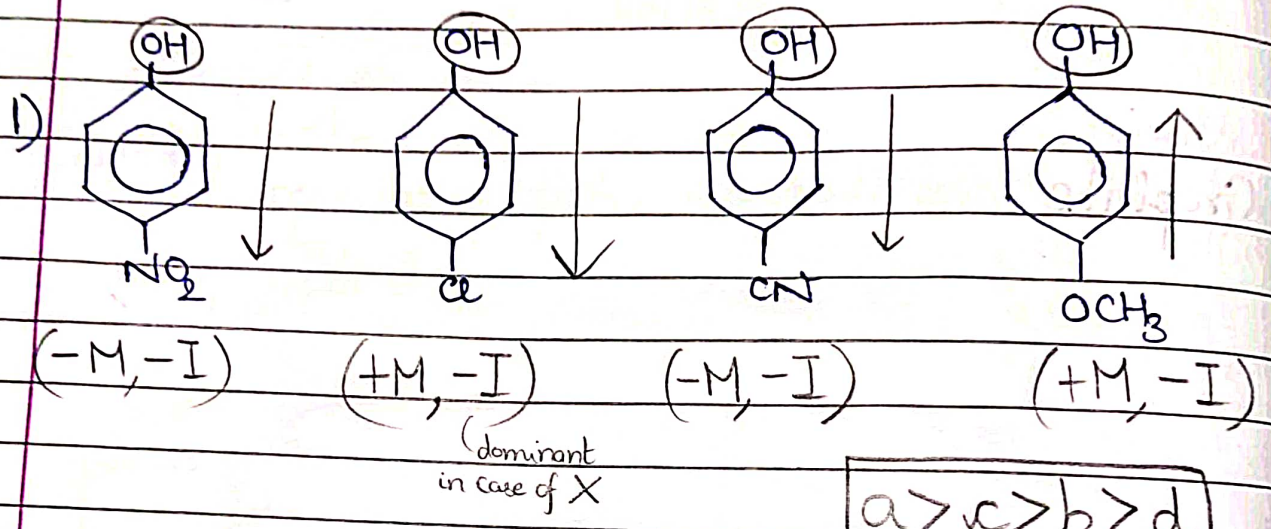 OH OH OH OH
1)
NO₂ Cl CN OCH₃
(-M, -I) (+M, -I) (-M, -I) (+M, -I)
(dominant
in case of X
a > c > b > d